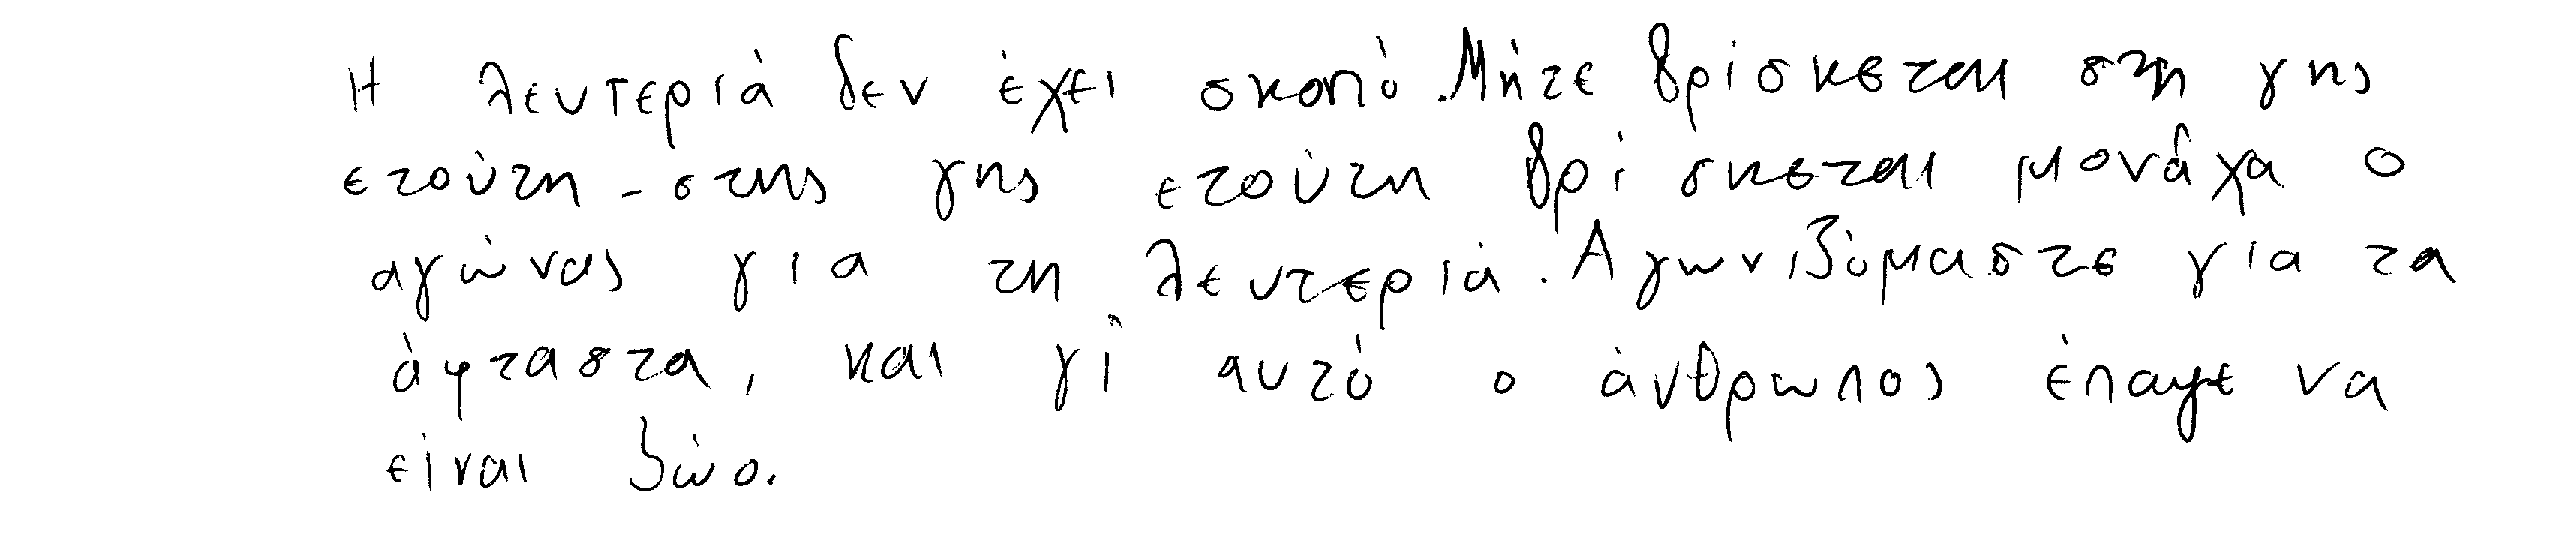 Η λευτεριά δεν έχει σκοπό. Μήτε βρίσκεται στη γης
ετούτη - στης γης ετούτη βρίσκεται μονάχα ο
αγώνας για τη λευτεριά. Αγωνιζόμαστε για τα
άφταστα, και γι' αυτό ο άνθρωπος έπαψε να
είναι ζώο.